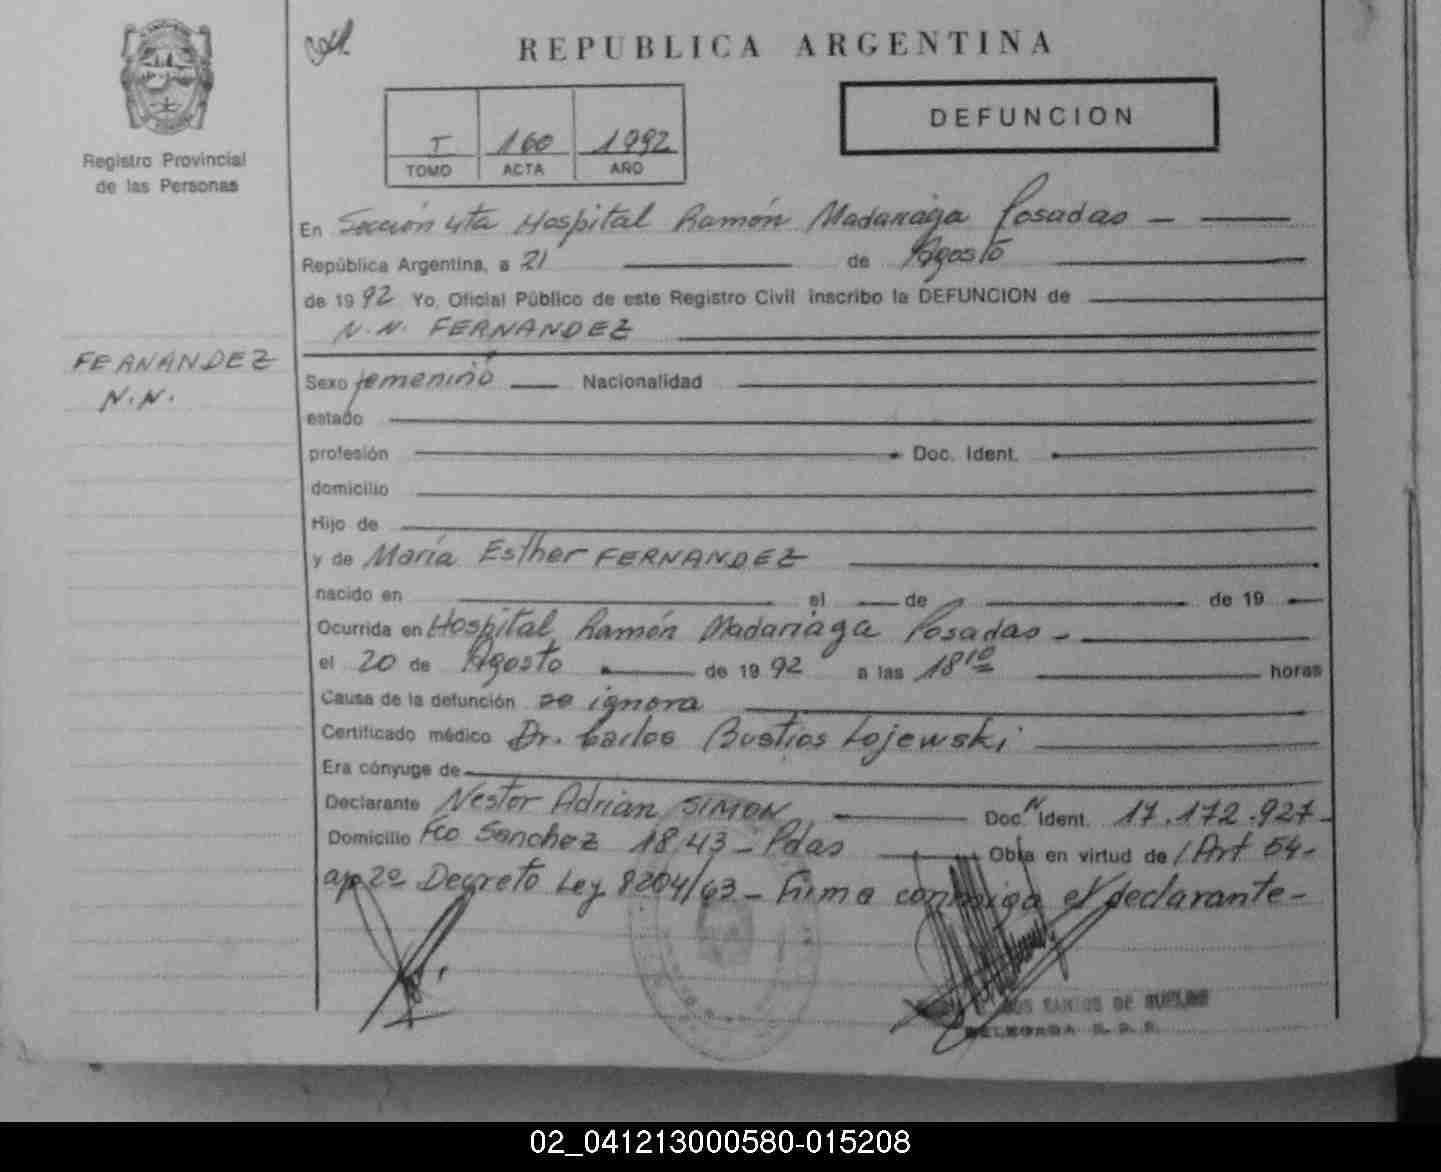 REPUBLICA ARGENTINA
DEFUNCION
I 160 1992
TOMO ACTA AÑO
Registro Provincial
de las Personas
En Sección 4ta Hospital Ramón Madariaga Posadas
República Argentina, a 21 de Agosto
de 1992 Yo, Oficial Público de este Registro Civil inscribo la DEFUNCION de
N.N. FERNANDEZ
FERNANDEZ
N.N.
Sexo femenino Nacionalidad
estado
profesión Doc. Ident.
domicilio
Hijo de
y de María Esther FERNANDEZ
nacido en el de de 19
Ocurrida en Hospital Ramón Madariaga Posadas -
el 20 de Agosto de 1992 a las 18 10 horas
Causa de la defunción se ignora
Certificado médico Dr. Carlos Bustios Lojewski
Era cónyuge de
Declarante Nestor Adrian SIMON Doc. N Ident. 17.172.927-
Domicilio Fco Sanchez 1843 - Pdas Obra en virtud de / Art 54-
ap 2º Decreto Ley 8204/63 - Firma conmigo el declarante -
DOS SANTOS DE
DELEGADA R. P. P.
02_041213000580-015208